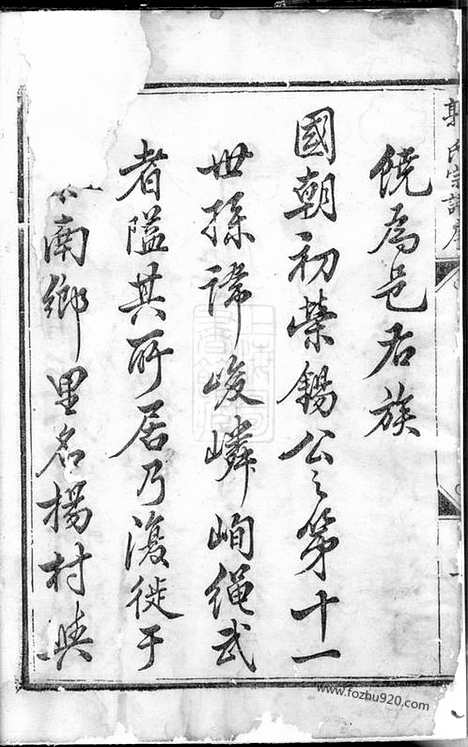 郭氏宗譜序
饒爲邑右族
國朝初榮錫公之第十一
世孫諱峻嶙峋繩武
者隘其所居乃復徙于
南鄉里名楊村與
www.fozhu920.com